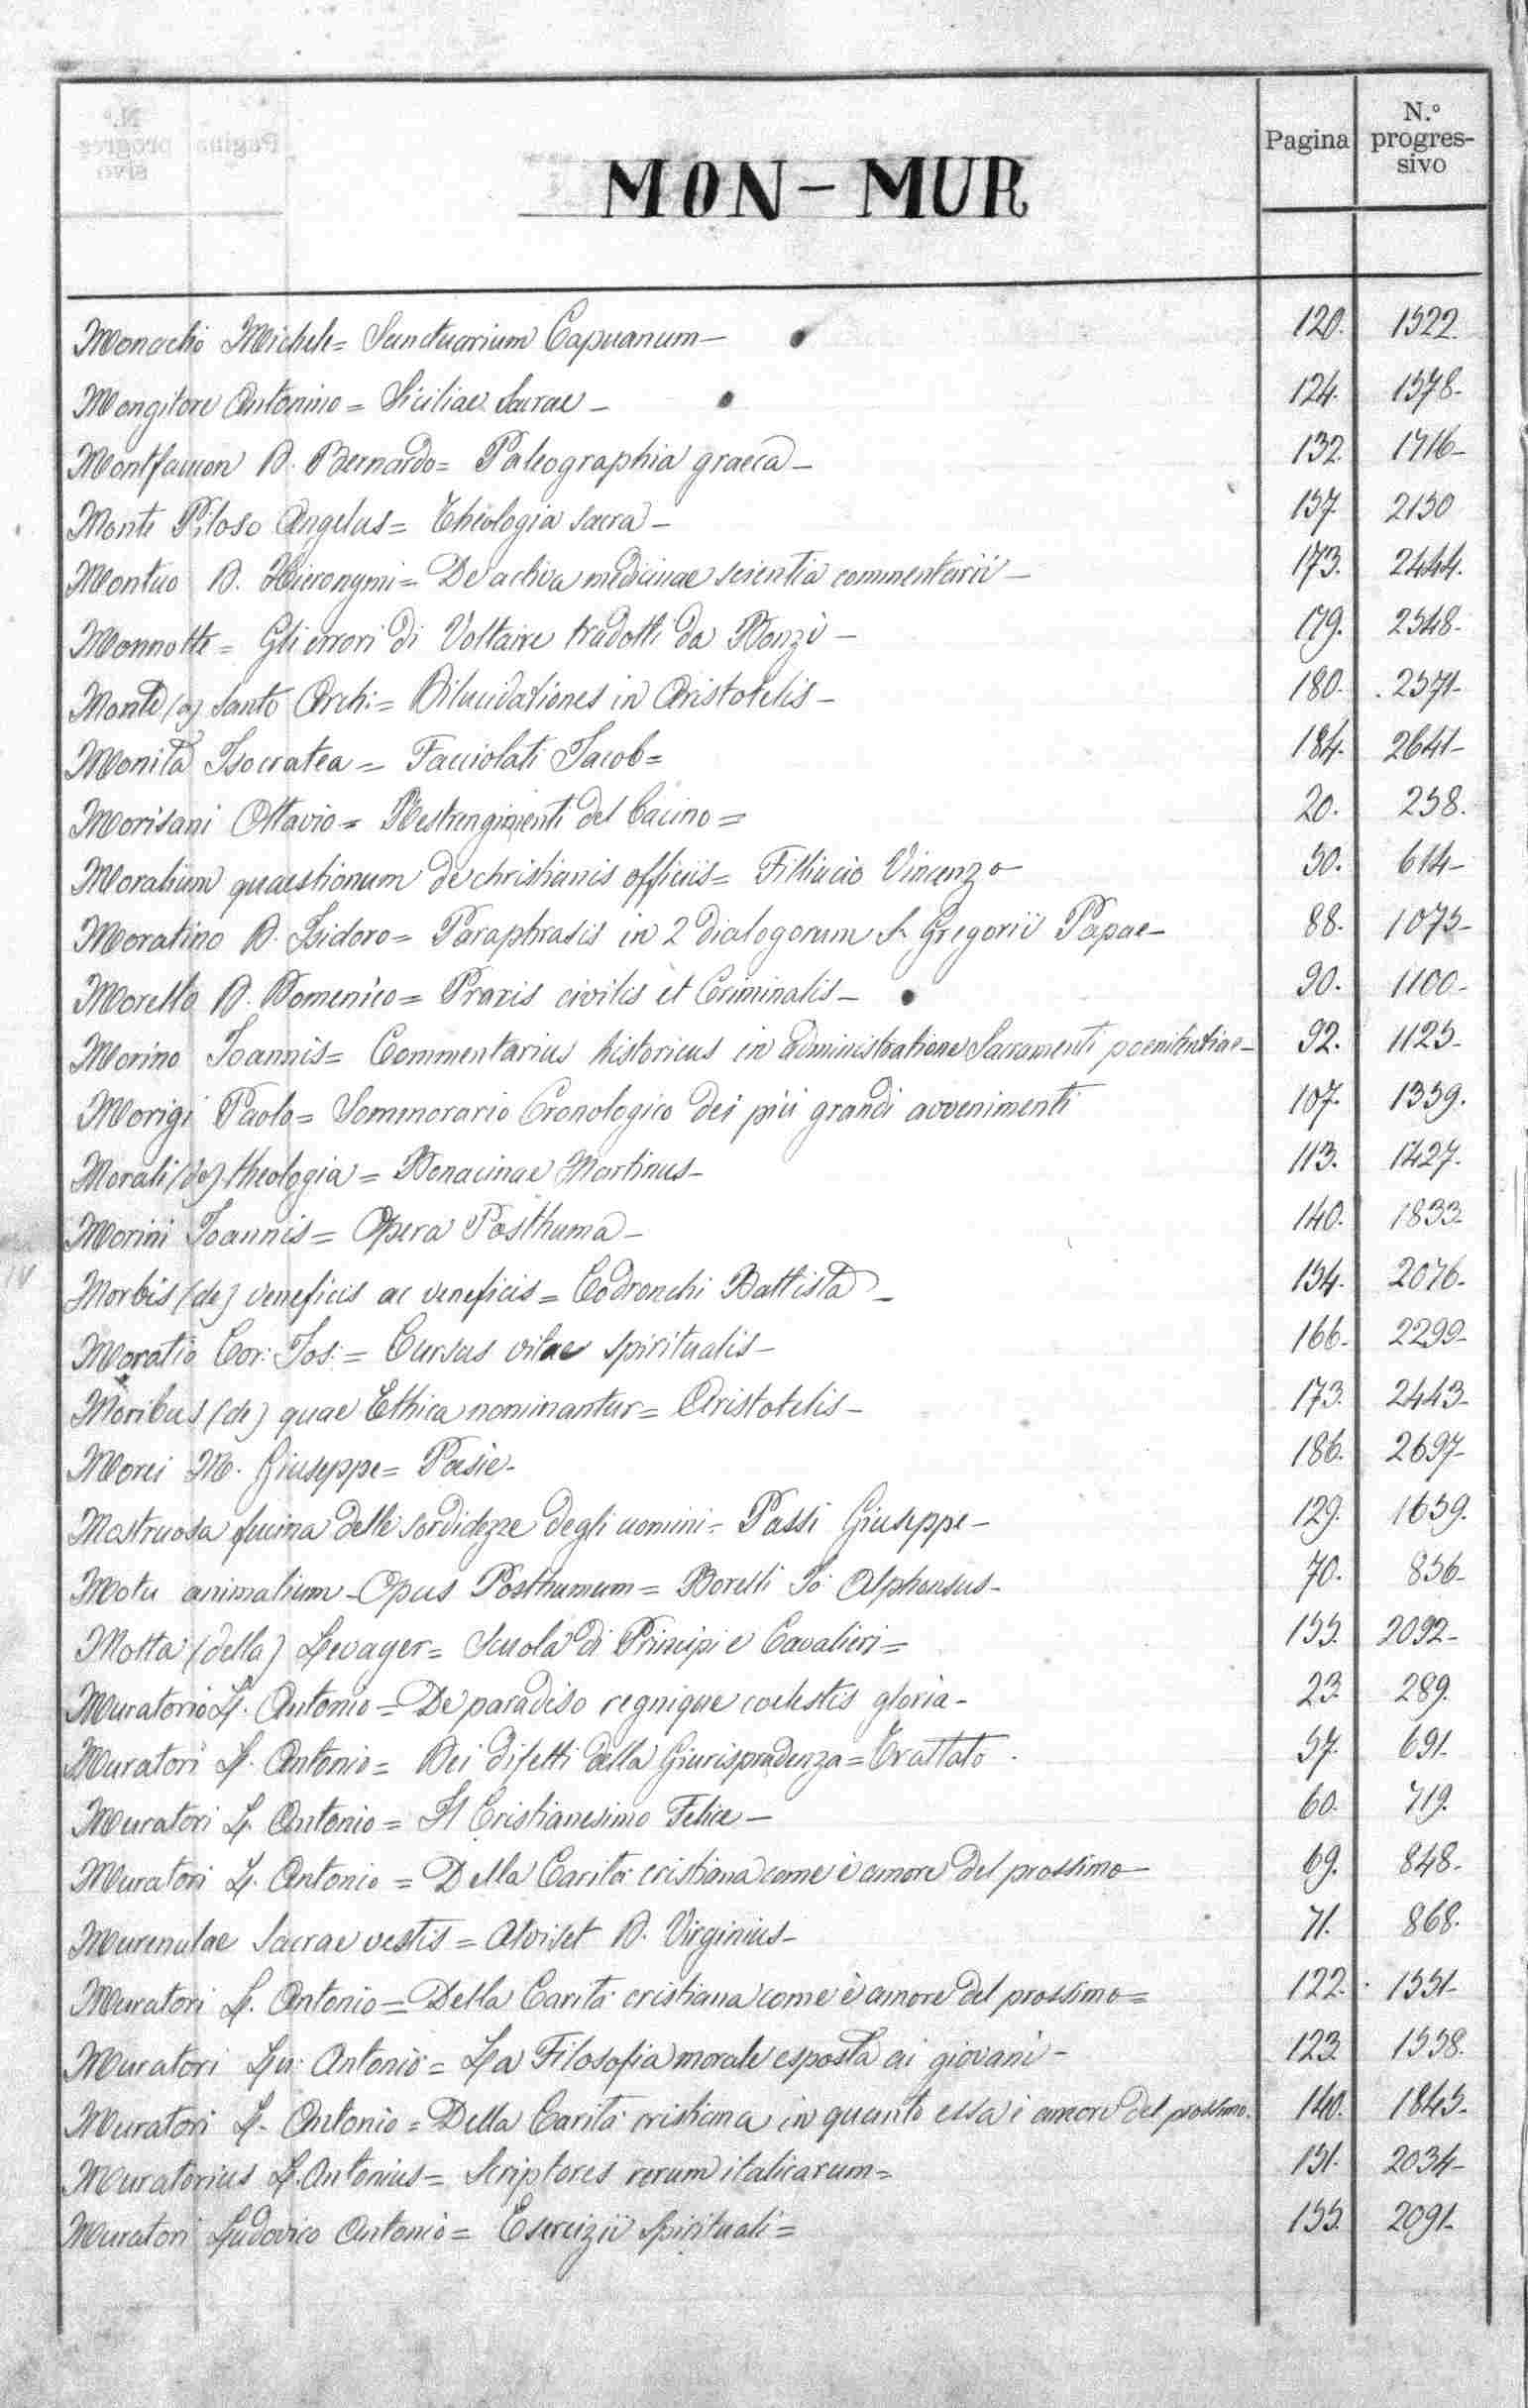 Pagina
N.° progres-
sivo
MON - MUR
Monachi Michele = Sanctuarium Capuanum - 120. 1522.
Mongitore Antonino = Siciliae Sacrae - 124. 1578.
Montfaucon D. Bernardo = Paleographia graeca - 132. 1716-
Monte Piloso Angelus = Theologia sacra - 157. 2130
Montuo D. Hieronymi = De activa medicinae scientia commentarii - 173. 2444.
Monnotte = Gli errori di Voltaire tradotti da Bonzi - 179. 2548.
Monte (a) Santo Arch: = Dilucidationes in Aristotelis - 180. 2571-
Monita Isocratea = Facciolati Jacob = 184. 2641-
Morisani Ottavio = Restringimenti del bacino = 20. 258.
Moralium quaestionum de christianis officiis = Filliucio Vincenzo 50. 614-
Moratino D. Isidoro = Paraphrasis in 2 dialogorum S. Gregorii Papae - 88. 1075-
Morello D. Domenico = Praxis civilis et Criminalis - 90. 1100-
Morino Joannis = Commentarius historicus in administratione Sacramenti poenitentiae - 92. 1125-
Morigi Paolo = Sommorario Cronologico dei più grandi avvenimenti 107. 1339.
Morali (de) theologia = Bonacinae Martinus - 113. 1427.
Morini Joannis = Opera Posthuma - 140. 1833.
Morbis (de) veneficis ac veneficis = Codronchi Battista - 154. 2076-
Moratio Cor: Jos: = Cursus vitae spiritualis - 166. 2299-
Moribus (de) quae Ethica nominantur = Aristotelis - 173. 2443-
Morei M. Giuseppe = Poesie - 186. 2697-
Mostruosa fucina delle sordidezze degli uomini = Passi Giuseppe - 129. 1659.
Motu animalium - Opus Posthumum = Borelli Jo: Alphonsus - 70. 856-
Motta (della) Levager = Scuola di Principi e Cavalieri = 155. 2092-
Muratorio L. Antonio = De paradiso regnique coelestis gloria - 23. 289.
Muratori L. Antonio = Dei difetti della Giurisprudenza = Trattato. 57. 691-
Muratori L. Antonio = Il Cristianesimo Felice - 60. 719.
Muratori L. Antonio = Della Carità cristiana come è amore del prossimo - 69. 848.
Murenulae Sacrae vestis = Alviset D. Virginius - 71. 868.
Muratori L. Antonio = Della Carità cristiana come è amore del prossimo = 122. 1551-
Muratori Lu: Antonio = La Filosofia morale esposta ai giovani - 123. 1558.
Muratori L. Antonio = Della Carità cristiana in quanto essa è amore del prossimo. 140. 1845-
Muratorius L. Antonius = Scriptores rerum italicarum = 151. 2034-
Muratori Ludovico Antonio = Esercizii Spirituali = 155. 2091-